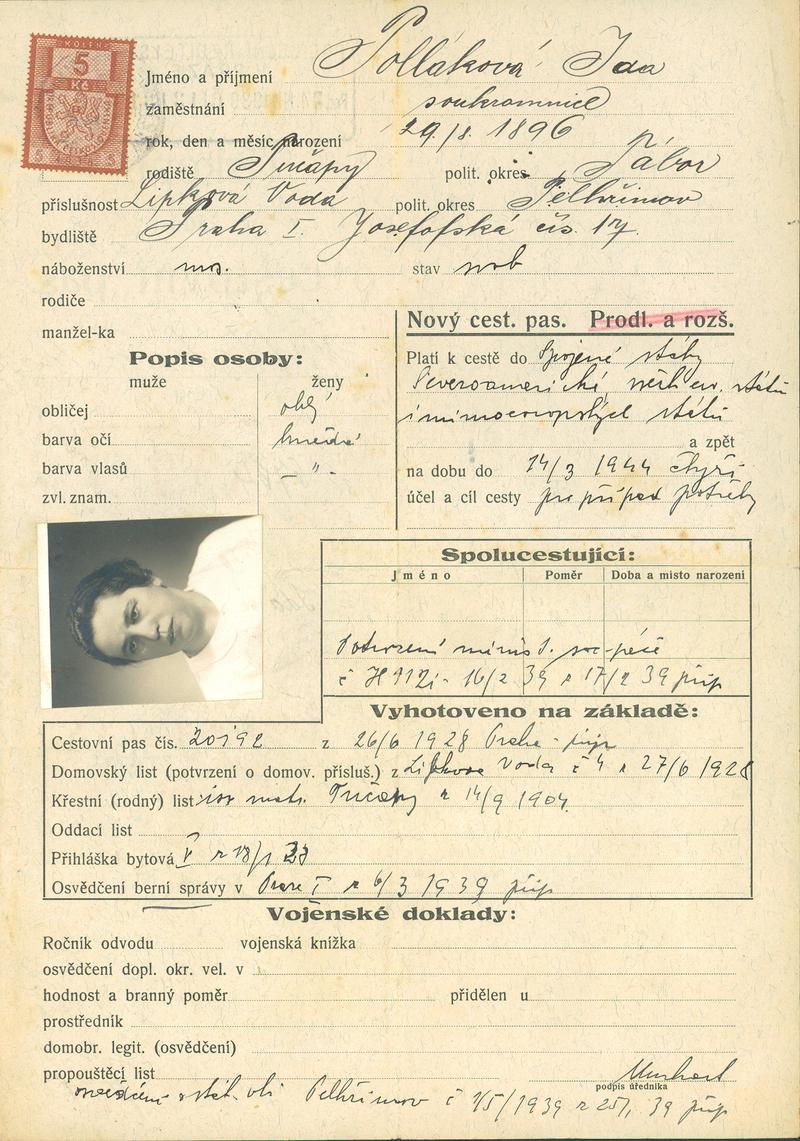 KOLEK
5
Kč
Jméno a příjmení Polláková Ida
zaměstnání soukromnice
rok, den a měsíc narození 29/8. 1896
rodiště polit. okres Tábor
příslušnost Lipková Voda polit. okres Pelhřimov
bydliště Praha I. Josefofská čís. 17
náboženství mos. stav svob
rodiče
manžel-ka
Nový cest. pas. Prodl. a rozš.
Popis osoby:
muže ženy
obličej oblý
barva očí hnědé
barva vlasů — " —
zvl. znam.
Platí k cestě do Spojené státy
Severoamerické států
i mimoevropských států
a zpět
na dobu do 14/3 1944 čtyři
účel a cíl cesty pro případ potřeby
Spolucestující:
Jméno Poměr Doba a místo narození
Potvrzení minist. soc. péče
č 16/2 39 z 17/2 39 přip
Vyhotoveno na základě:
Cestovní pas čís. 20192 z 26/6 1928 Praha přip
Domovský list (potvrzení o domov. přísluš.) z Lipkova Voda č 4 z 27/6 1928
Křestní (rodný) list isr matr. z 14/9 1904.
Oddací list
Přihláška bytová V z 18/1
Osvědčení berní správy v Praze I z 6/3 1939 přip
Vojenské doklady:
Ročník odvodu vojenská knížka
osvědčení dopl. okr. vel. v
hodnost a branný poměr přidělen u
prostředník
domobr. legit. (osvědčení)
propouštěcí list
podpis úředníka
osvědčení o stát. obč Pelhřimov č 1/5/1939 z 25/1 39 přip